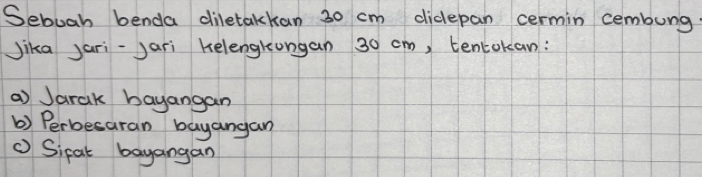 Sebuah benda diletakkan 30 cm didepan cermin cembung.
Jika jari-jari kelengkungan 30 cm, tentukan:
a) Jarak bayangan
b) Perbesaran bayangan
c) Sifat bayangan